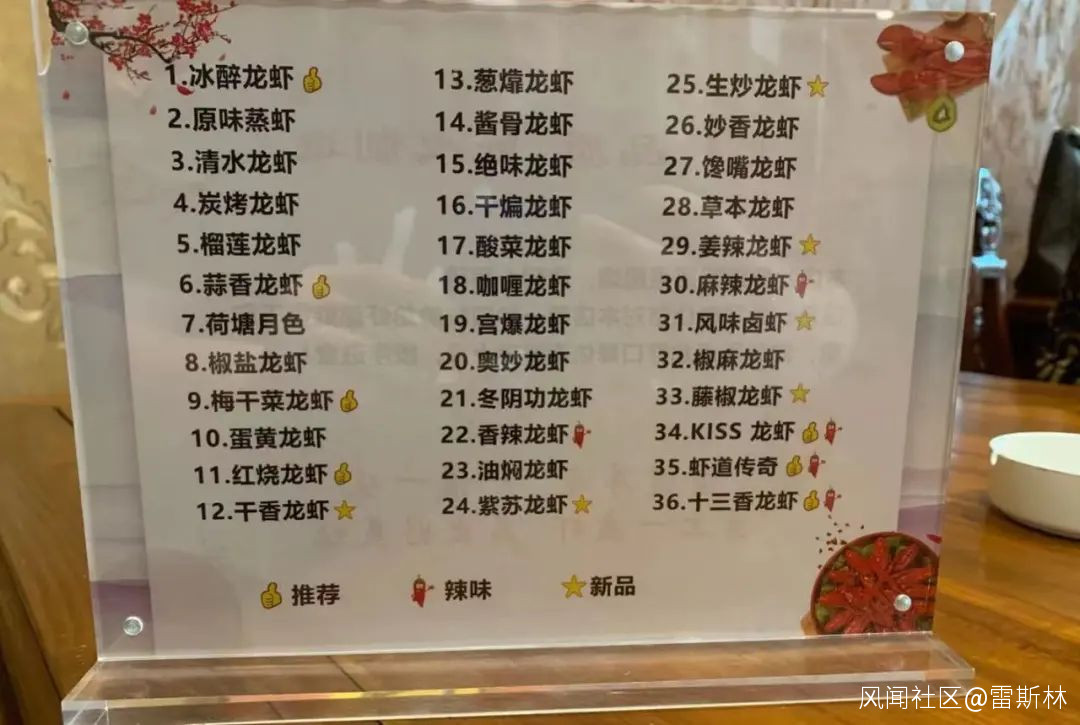 1.冰醉龙虾
2.原味蒸虾
3.清水龙虾
4.炭烤龙虾
5.榴莲龙虾
6.蒜香龙虾
7.荷塘月色
8.椒盐龙虾
9.梅干菜龙虾
10.蛋黄龙虾
11.红烧龙虾
12.干香龙虾
13.葱㸆龙虾
14.酱骨龙虾
15.绝味龙虾
16.干煸龙虾
17.酸菜龙虾
18.咖喱龙虾
19.宫爆龙虾
20.奥妙龙虾
21.冬阴功龙虾
22.香辣龙虾
23.油焖龙虾
24.紫苏龙虾
25.生炒龙虾
26.妙香龙虾
27.馋嘴龙虾
28.草本龙虾
29.姜辣龙虾
30.麻辣龙虾
31.风味卤虾
32.椒麻龙虾
33.藤椒龙虾
34.KISS 龙虾
35.虾道传奇
36.十三香龙虾
推荐
辣味
新品
风闻社区@雷斯林